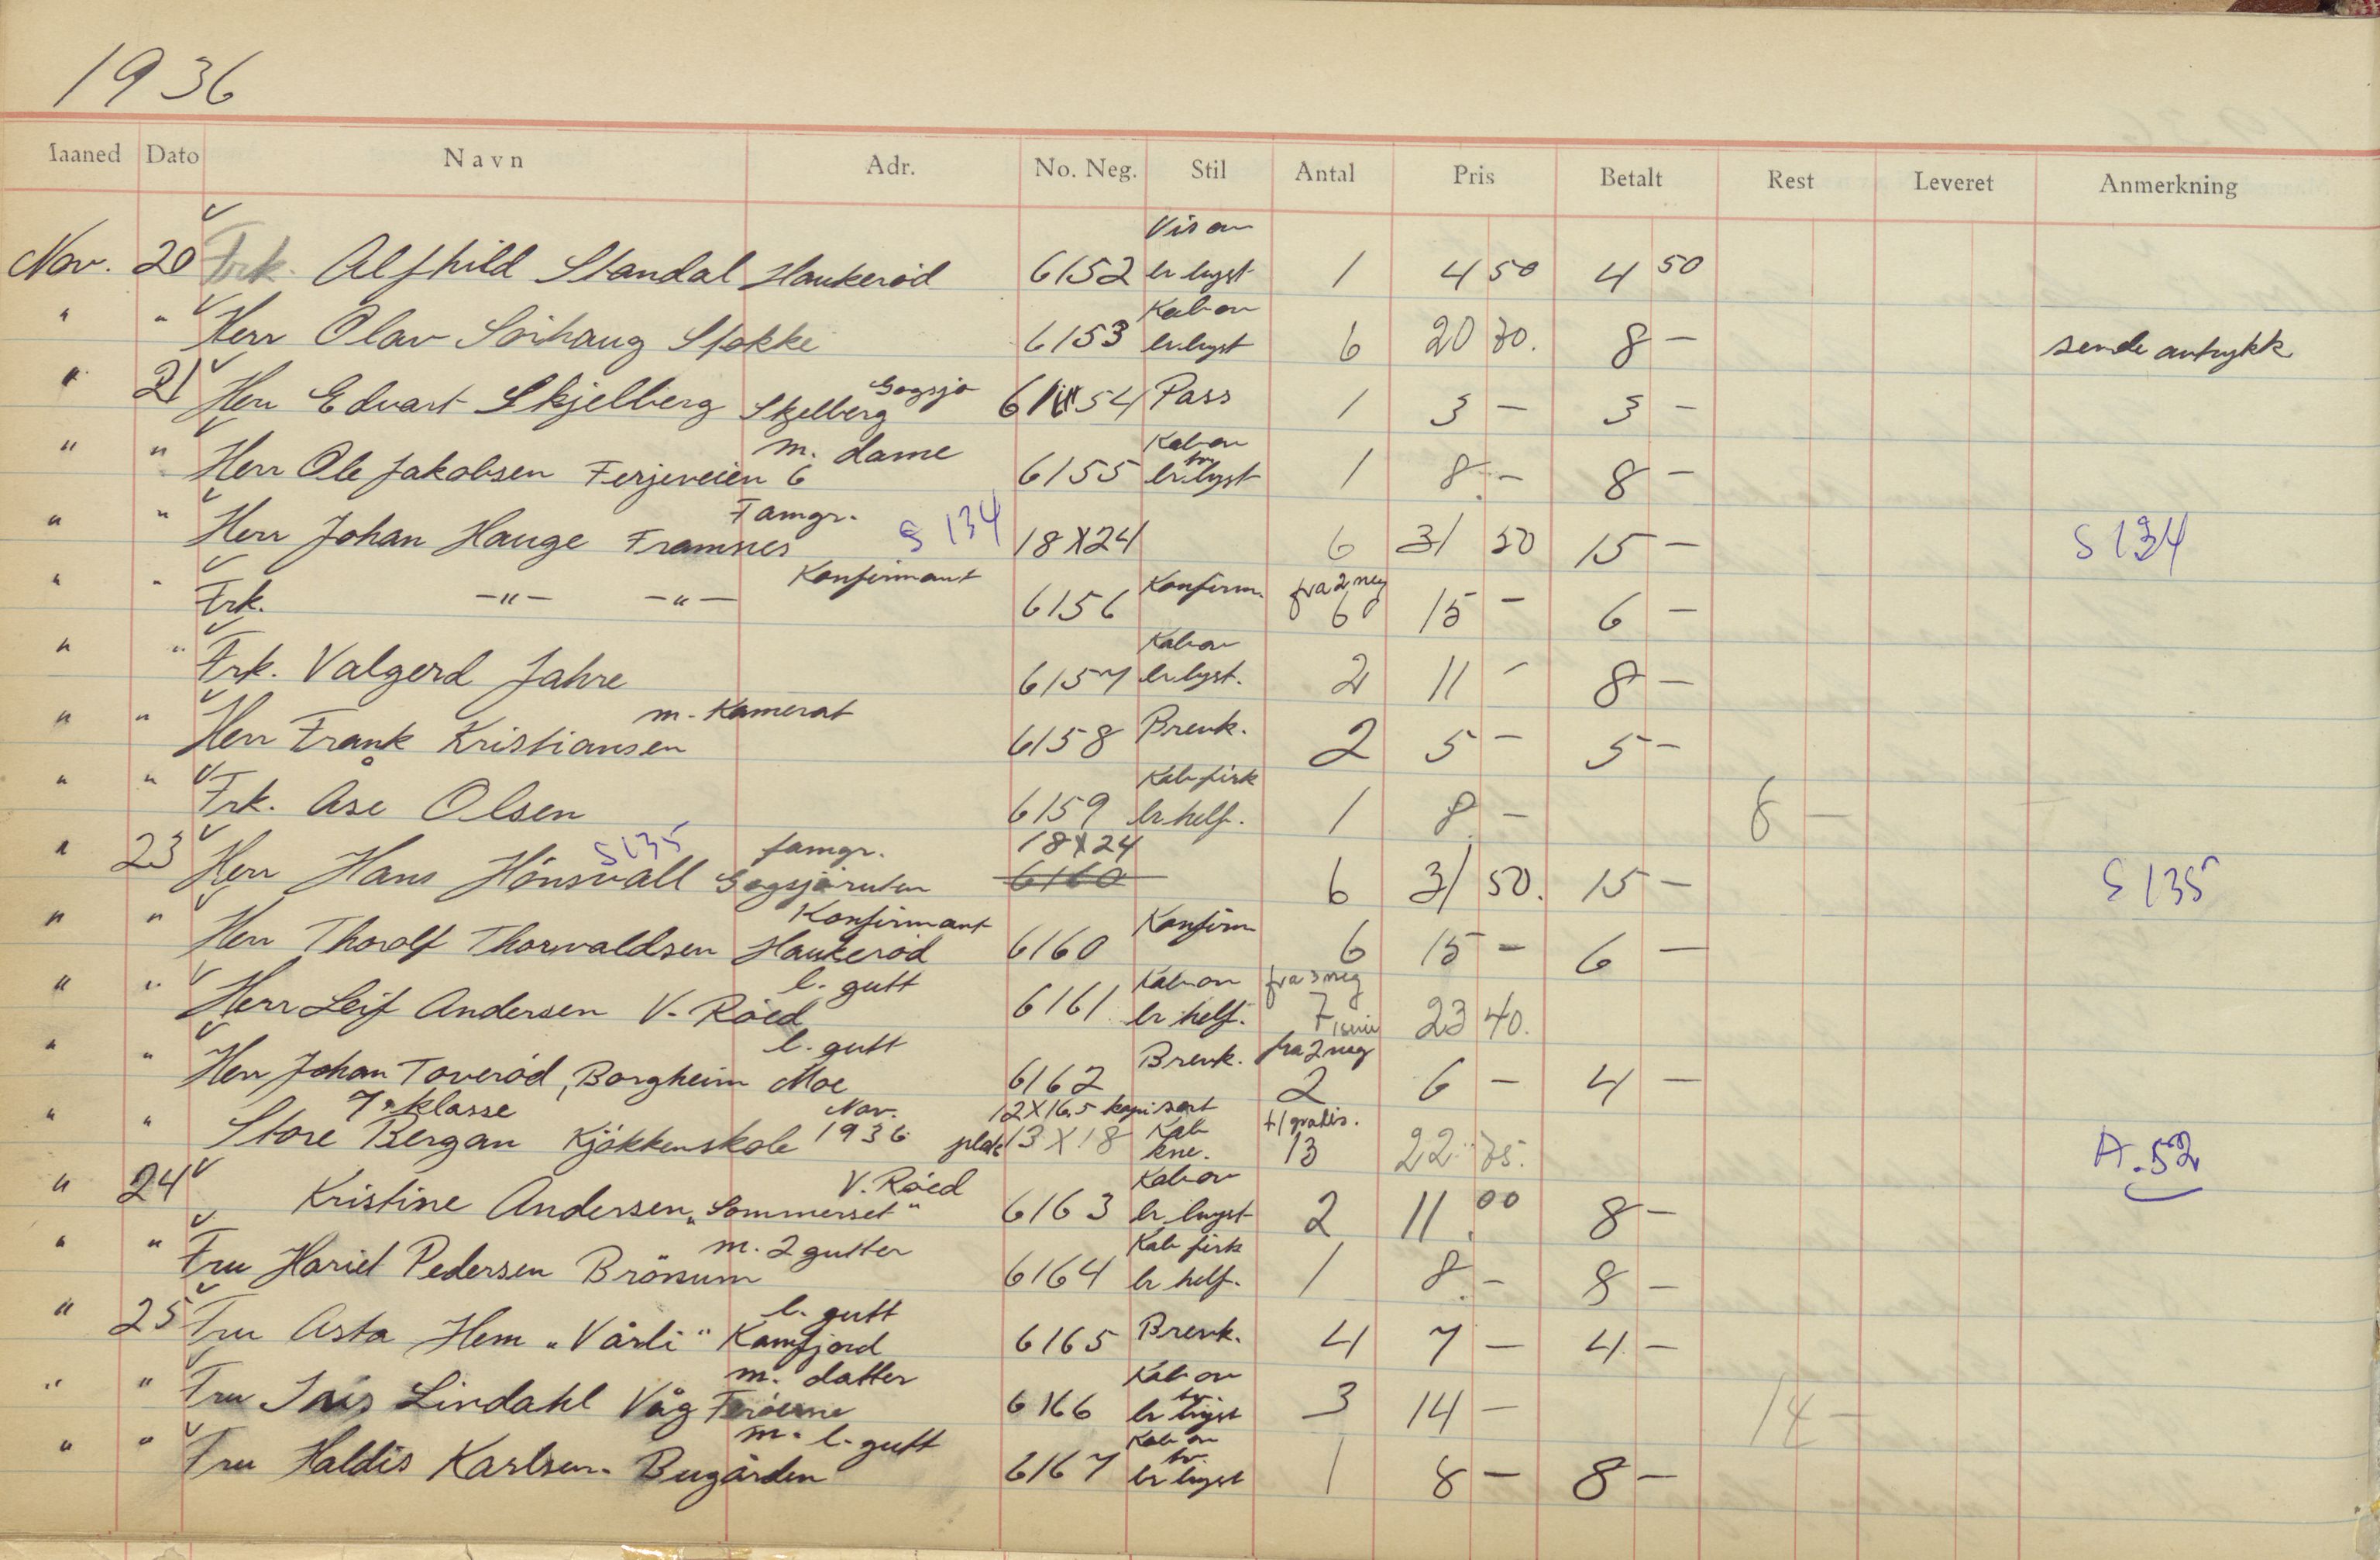 1936
Maaned Dato Navn Adr. No. Neg. Stil Antal Pris Betalt Rest Leveret Anmerkning
Vis ov
Nov. 20 Frk. Alfhild Standal Haukeröd 6152 br. byst 1 4 50 4 50
Kab ov
" " Herr Olav Sörhaug Stokke 6153 br. byst 6 20 70. 8 - sende avtrykk
Gogsjø
" 21 Herr Edvart Skjelberg Skjelberg 6154 Pass 1 3 - 3 -
m. dame Kab ov
" " Herr Ole Jakobsen Ferjeveien 6 6155 br. tv. byst 1 8 - 8 -
Famgr.
" " Herr Johan Hauge Framnes S 134 18X24 6 31 50 15 - S 134
Konfirmant Konfirm. fra 2 neg
" " Frk. -"- -"- 6156 6 15 - 6 -
Kab ov
" " Frk. Valgerd Jahre 6157 br. byst. 2 11 - 8 -
m. Kamerat
" " Herr Frank Kristiansen 6158 Brevk. 2 5 - 5 -
Kab firk
" " Frk. Åse Olsen 6159 br. helf. 1 8 - 8 -
S135 famgr. 18X24
" 23 Herr Hans Hönsvall Gogsjöruten 6160 6 31 50. 15 - S 135
Konfirmant Konfirm
" " Herr Thorolf Thorvaldsen Haukeröd 6160 6 15 - 6 -
l. gutt Kab ov fra 3 neg
" " Herr Leif Andersen V. Röed 6161 br. helf. 7 23 40.
l. gutt Brevk. fra 2 neg
" " Herr Johan Toveröd, Borgheim Moe 6162 2 6 - 4 -
7. klasse Nov. 12X16,5 kopi sort + 1 gratis.
" " Store Bergan Kjökkenskole 1936 plate 13X18 Kab kne. 13 22 75. A. 52
V. Röed Kab ov
" 24 Kristine Andersen „Sommerset" 6163 br. byst 2 11.00 8 -
m. 2 gutter Kab firk
" " Fru Hariet Pedersen Brönum 6164 br. helf. 1 8. - 8 -
l. gutt
" 25 Fru Asta Hem „Vårli" Kamfjord 6165 Brevk. 4 7 - 4 -
m. datter Kab ov
" " Fru Inis Lindahl Våg Feröerne 6166 br. tv. byst 3 14 - 14 -
m. l. gutt Kab ov
" " Fru Haldis Karlsen. Bugården 6167 br. tv. byst 1 8 - 8 -